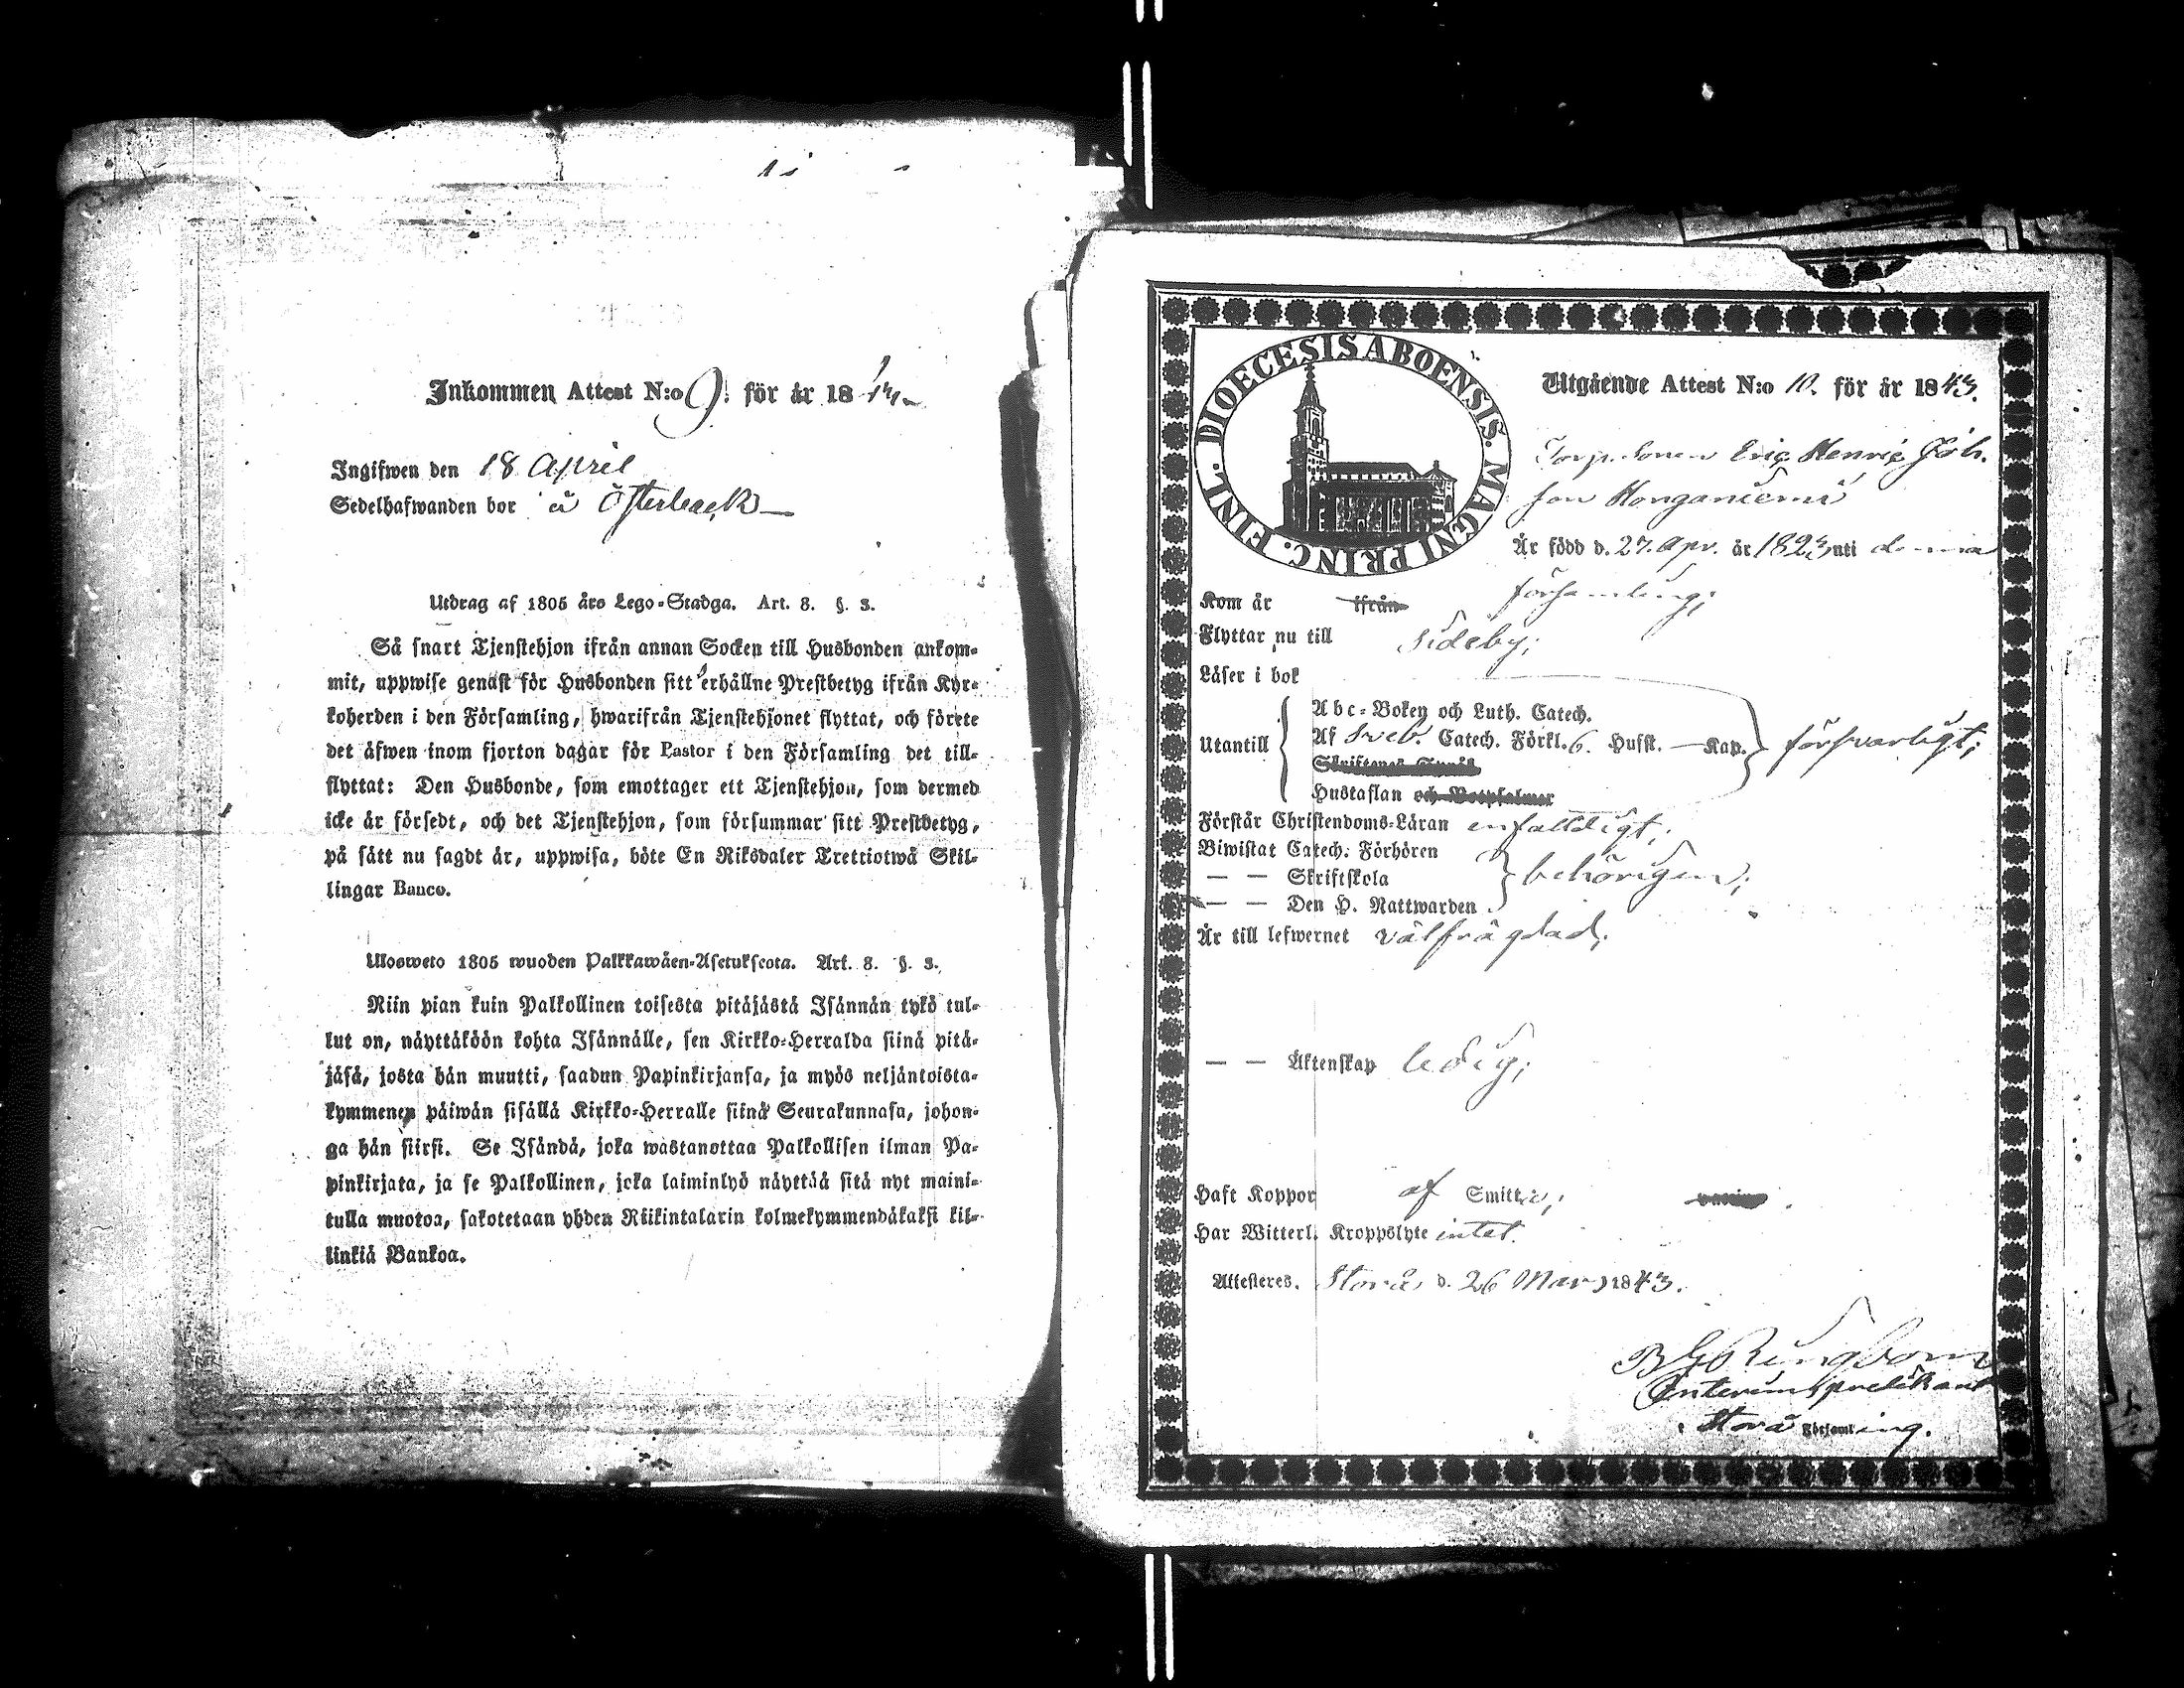 Inkommen Attest N:o 9. för år 1843
Ingifwen den 18 April
Sedelhafwanden bor å Österback
Utdrag af 1805 års Lego-Stadga. Art. 8. §. 3.
Så snart Tjenstehjon ifrån annan Socken till Husbonden ankom-
mit, uppwise genast för Husbonden sitt erhållne Prestbetyg ifrån Kyr-
koherden i den Församling, hwarifrån Tjenstehjonet flyttat, och förete
det äfwen inom fjorton dagar för Pastor i den Församling det till-
flyttat: Den Husbonde, som emottager ett Tjenstehjon, som dermed
icke är försedt, och det Tjenstehjon, som försummar sitt Prestbetyg,
på sätt nu sagdt är, uppwisa, böte En Riksdaler Trettiotwå Skil-
lingar Banco.
Ulosweto 1805 wuoden Palkkawäen-Asetuksesta. Art. 8. §. 3.
Niin pian kuin Palkollinen toisesta pitäjästä Isännän tykö tul-
lut on, näyttäköön kohta Isännälle, sen Kirkko-Herralda siinä pitä-
jäsä, josta hän muutti, saadun Papinkirjansa, ja myös neljäntoista-
kymmenen päiwän sisällä Kirkko-Herralle siinä Seurakunnasa, johon-
ga hän siirsi. Se Isändä, joka wastanottaa Palkollisen ilman Pa-
pinkirjata, ja se Palkollinen, joka laiminlyö näyttää sitä nyt maini-
tulla muotoa, sakotetaan yhden Riikintalarin kolmekymmendäkaksi kil-
linkiä Bankoa.
DIOECESIS ABOENSIS. MAGNI PRINC. FINL.
Utgående Attest N:o 10. för år 1843.
Torp.sonen Eric Henric Joh.
son Honganiemi
Är född d. 27. Apr. år 1823 uti denna
församling;
Kom år ifrån
Flyttar nu till Sideby;
Läser i bok
Utantill
Abc-Boken och Luth. Catech.
Af Sveb. Catech. Förkl. 6. Hufst. — Kap. försvarligt;
Skriftenes Språk
Hustaflan och Botpsalmer
Förstår Christendoms-Läran enfaldigt;
Biwistat Catech. Förhören
— — Skriftskola behörigen;
— — Den H. Nattwarden
Är till lefwernet välfrägdad,
— — Äktenskap ledig;
Haft Koppor af Smitta;
Har Witterl. Kroppslyte intet.
Attesteres. Storå d. 26 Mars 1843.
Interimspredikant
i Storå Församling.